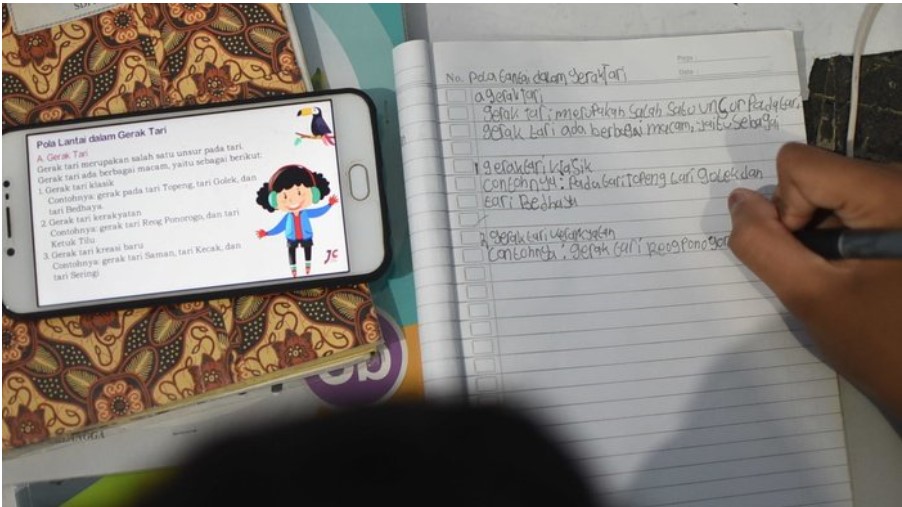 Pola Lantai dalam Gerak Tari
A. Gerak Tari
Gerak tari merupakan salah satu unsur pada tari.
Gerak tari ada berbagai macam, yaitu sebagai berikut:
1. Gerak tari klasik
Contohnya: gerak pada tari Topeng, tari Golek, dan
tari Bedhaya
2. Gerak tari kerakyatan
Contohnya: gerak tari Reog Ponorogo, dan tari
Ketuk Tilu
3. Gerak tari kreasi baru
Contohnya: gerak tari Saman, tari Kecak, dan
tari Seringi
JC
No. Pola lantai dalam gerak Tari
a gerak tari
gerak tari merupakan salah satu unsur pada tari
gerak tari ada berbagai macam, yaitu sebagai
1 gerak tari klasik
contohnya: Pada tari Topeng tari golek dan
tari Bedhaya
2 gerak tari kerakyatan
contohnya: gerak tari Reog Ponogor